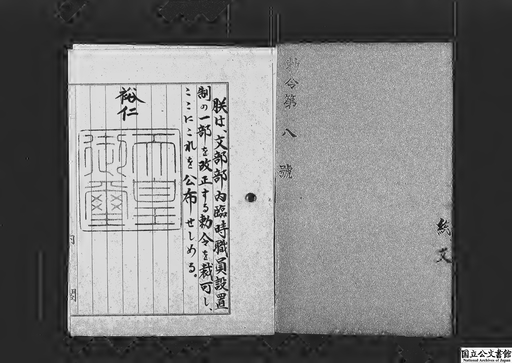 勅令第八號
朕は、文部部內臨時職員設置
制の一部を改正する勅令を裁可し、
ここにこれを公布せしめる。
裕仁
天皇御璽
内閣
国立公文書館
National Archives of Japan